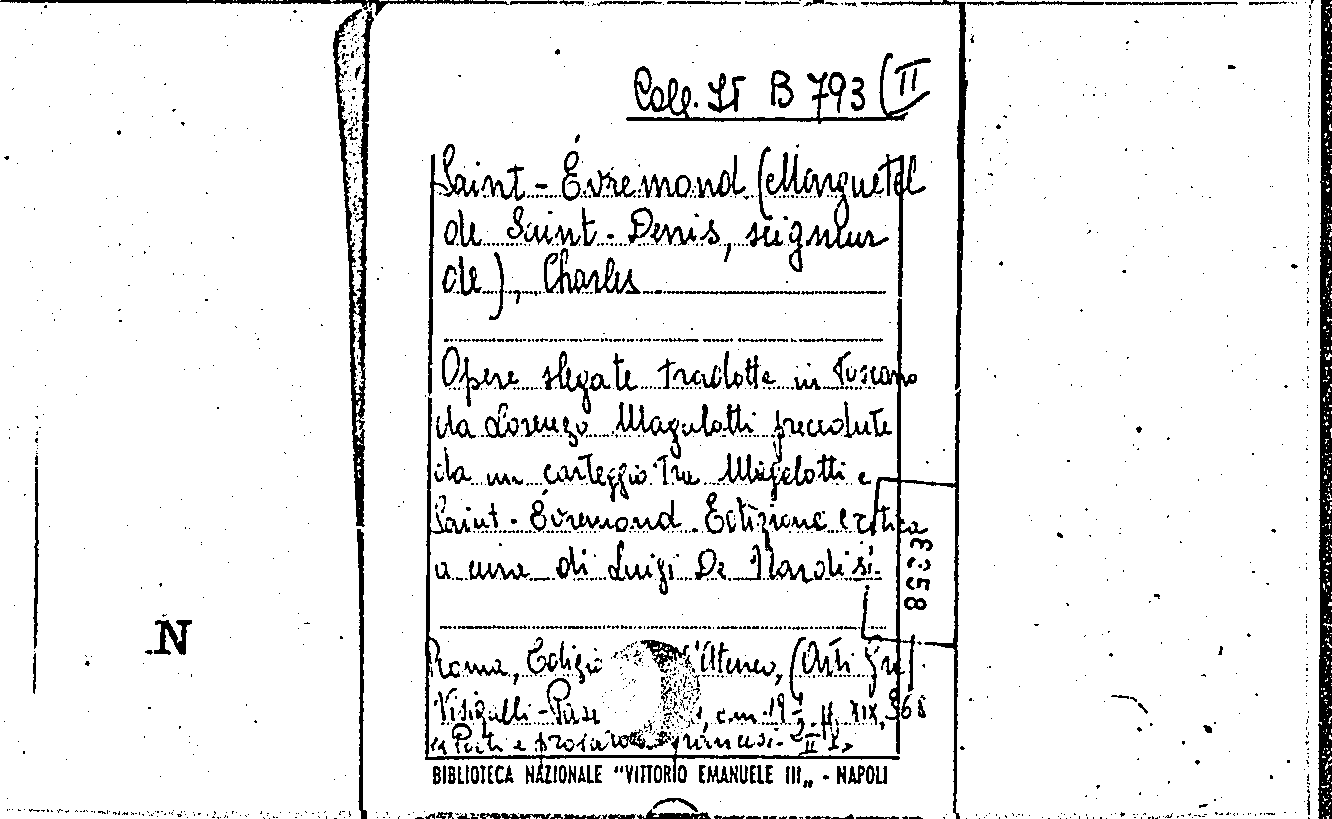 Coll. It B 793 (II
Saint-Évremond (Marguetel
de Saint-Denis, seigneur
de), Charles.
Opere slegate tradotte in Toscano
da Lorenzo Magalotti precedute
da un carteggio tra Magalotti e
Saint-Évremond. Edizione critica
a cura di Luigi De Nardis.
3358
N
Roma, Edizio l'Ateneo, (Arti Gra
Visigalli-Pas cm. 19 p. XIX, 368
Poeti e prosatori francesi. II
BIBLIOTECA NAZIONALE "VITTORIO EMANUELE III„ - NAPOLI